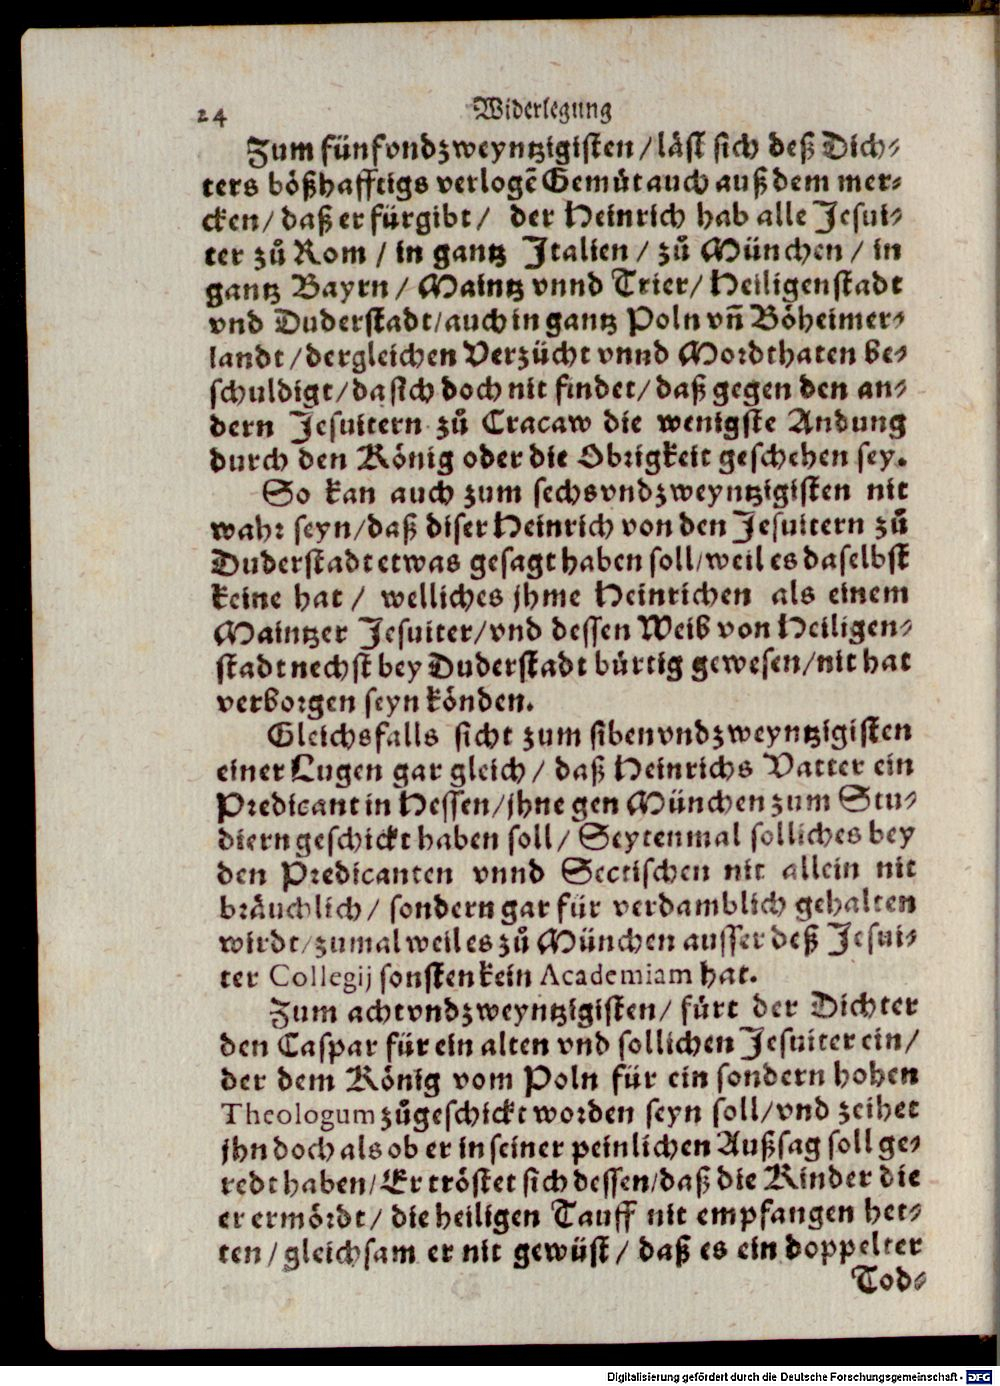 24 Widerlegung
Zum fünfondzweyntzigisten / läst sich deß Dich-
ters bößhafftigs verlogē Gemüt auch auß dem mer-
cken / daß er fürgibt / der Heinrich hab alle Jesui-
ter zů Rom / in gantz Italien / zů München / in
gantz Bayrn / Maintz vnnd Trier / Heiligenstadt
vnd Duderstadt / auch in gantz Poln vn̄ Böheimer-
landt / dergleichen Verzücht vnnd Mordthaten be-
schuldigt / da sich doch nit findet / daß gegen den an-
dern Jesuitern zů Cracaw die wenigste Andung
durch den König oder die Obrigkeit geschehen sey.
So kan auch zum sechsvndzweyntzigisten nit
wahr seyn / daß diser Heinrich von den Jesuitern zů
Duderstadt etwas gesagt haben soll / weil es daselbst
keine hat / welliches jhme Heinrichen als einem
Maintzer Jesuiter / vnd dessen Weib von Heiligen-
stadt nechst bey Duderstadt bürtig gewesen / nit hat
verborgen seyn könden.
Gleichsfalls sicht zum sibenvndzweyntzigisten
einer Lugen gar gleich / daß Heinrichs Vatter ein
Predicant in Hessen / jhne gen München zum Stu-
diern geschickt haben soll / Seytenmal solliches bey
den Predicanten vnnd Sectischen nit allein nit
bräuchlich / sondern gar für verdamblich gehalten
wirdt / zumal weil es zů München ausser deß Jesui-
ter Collegij sonsten kein Academiam hat.
Zum achtvndzweyntzigisten / fürt der Dichter
den Caspar für ein alten vnd sollichen Jesuiter ein /
der dem König vom Poln für ein sondern hohen
Theologum zůgeschickt worden seyn soll / vnd zeihet
jhn doch als ob er in seiner peinlichen Außsag soll ge-
redt haben / Er tröstet sich dessen / daß die Kinder die
er ermördt / die heiligen Tauff nit empfangen het-
ten / gleichsam er nit gewüst / daß es ein doppelter
Tod-
Digitalisierung gefördert durch die Deutsche Forschungsgemeinschaft - DFG